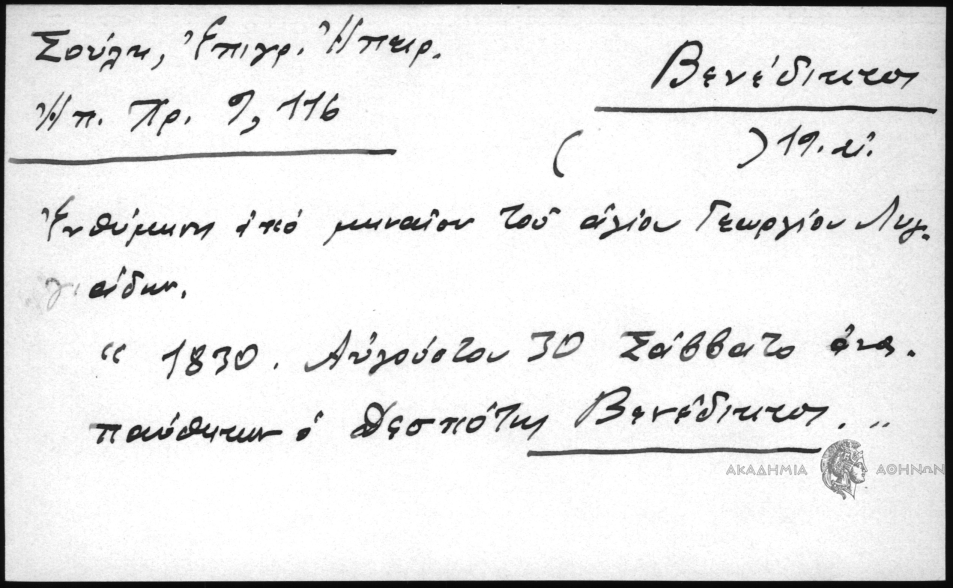 Σούλη, Ἐπιγρ. Ἠπειρ.
Ἠπ. Χρ. 9, 116
Βενέδικτος
( ) 19. αἰ.
Ἐνθύμησις ἀπό μηναῖον τοῦ ἁγίου Γεωργίου Λυγ-
γιάδων.
“ 1830. Αὐγούστου 30 Σάββατο ἀνα-
παύθηκεν ὁ Δεσπότης Βενέδικτος. „
ΑΚΑΔΗΜΙΑ ΑΘΗΝΩΝ